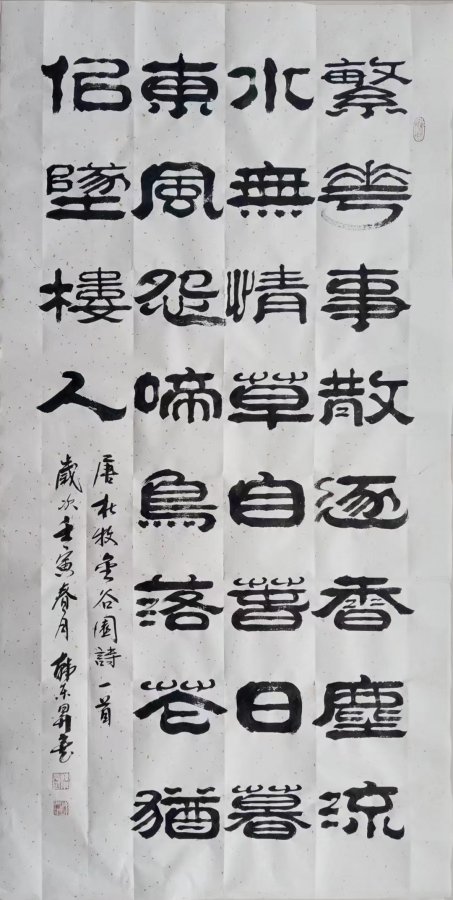 繁華事散逐香塵流
水無情草自萅日暮
東風怨啼鳥落花猶
佀墜樓人
唐杜牧金谷園詩一首
歲次壬寅春月韩东昇书